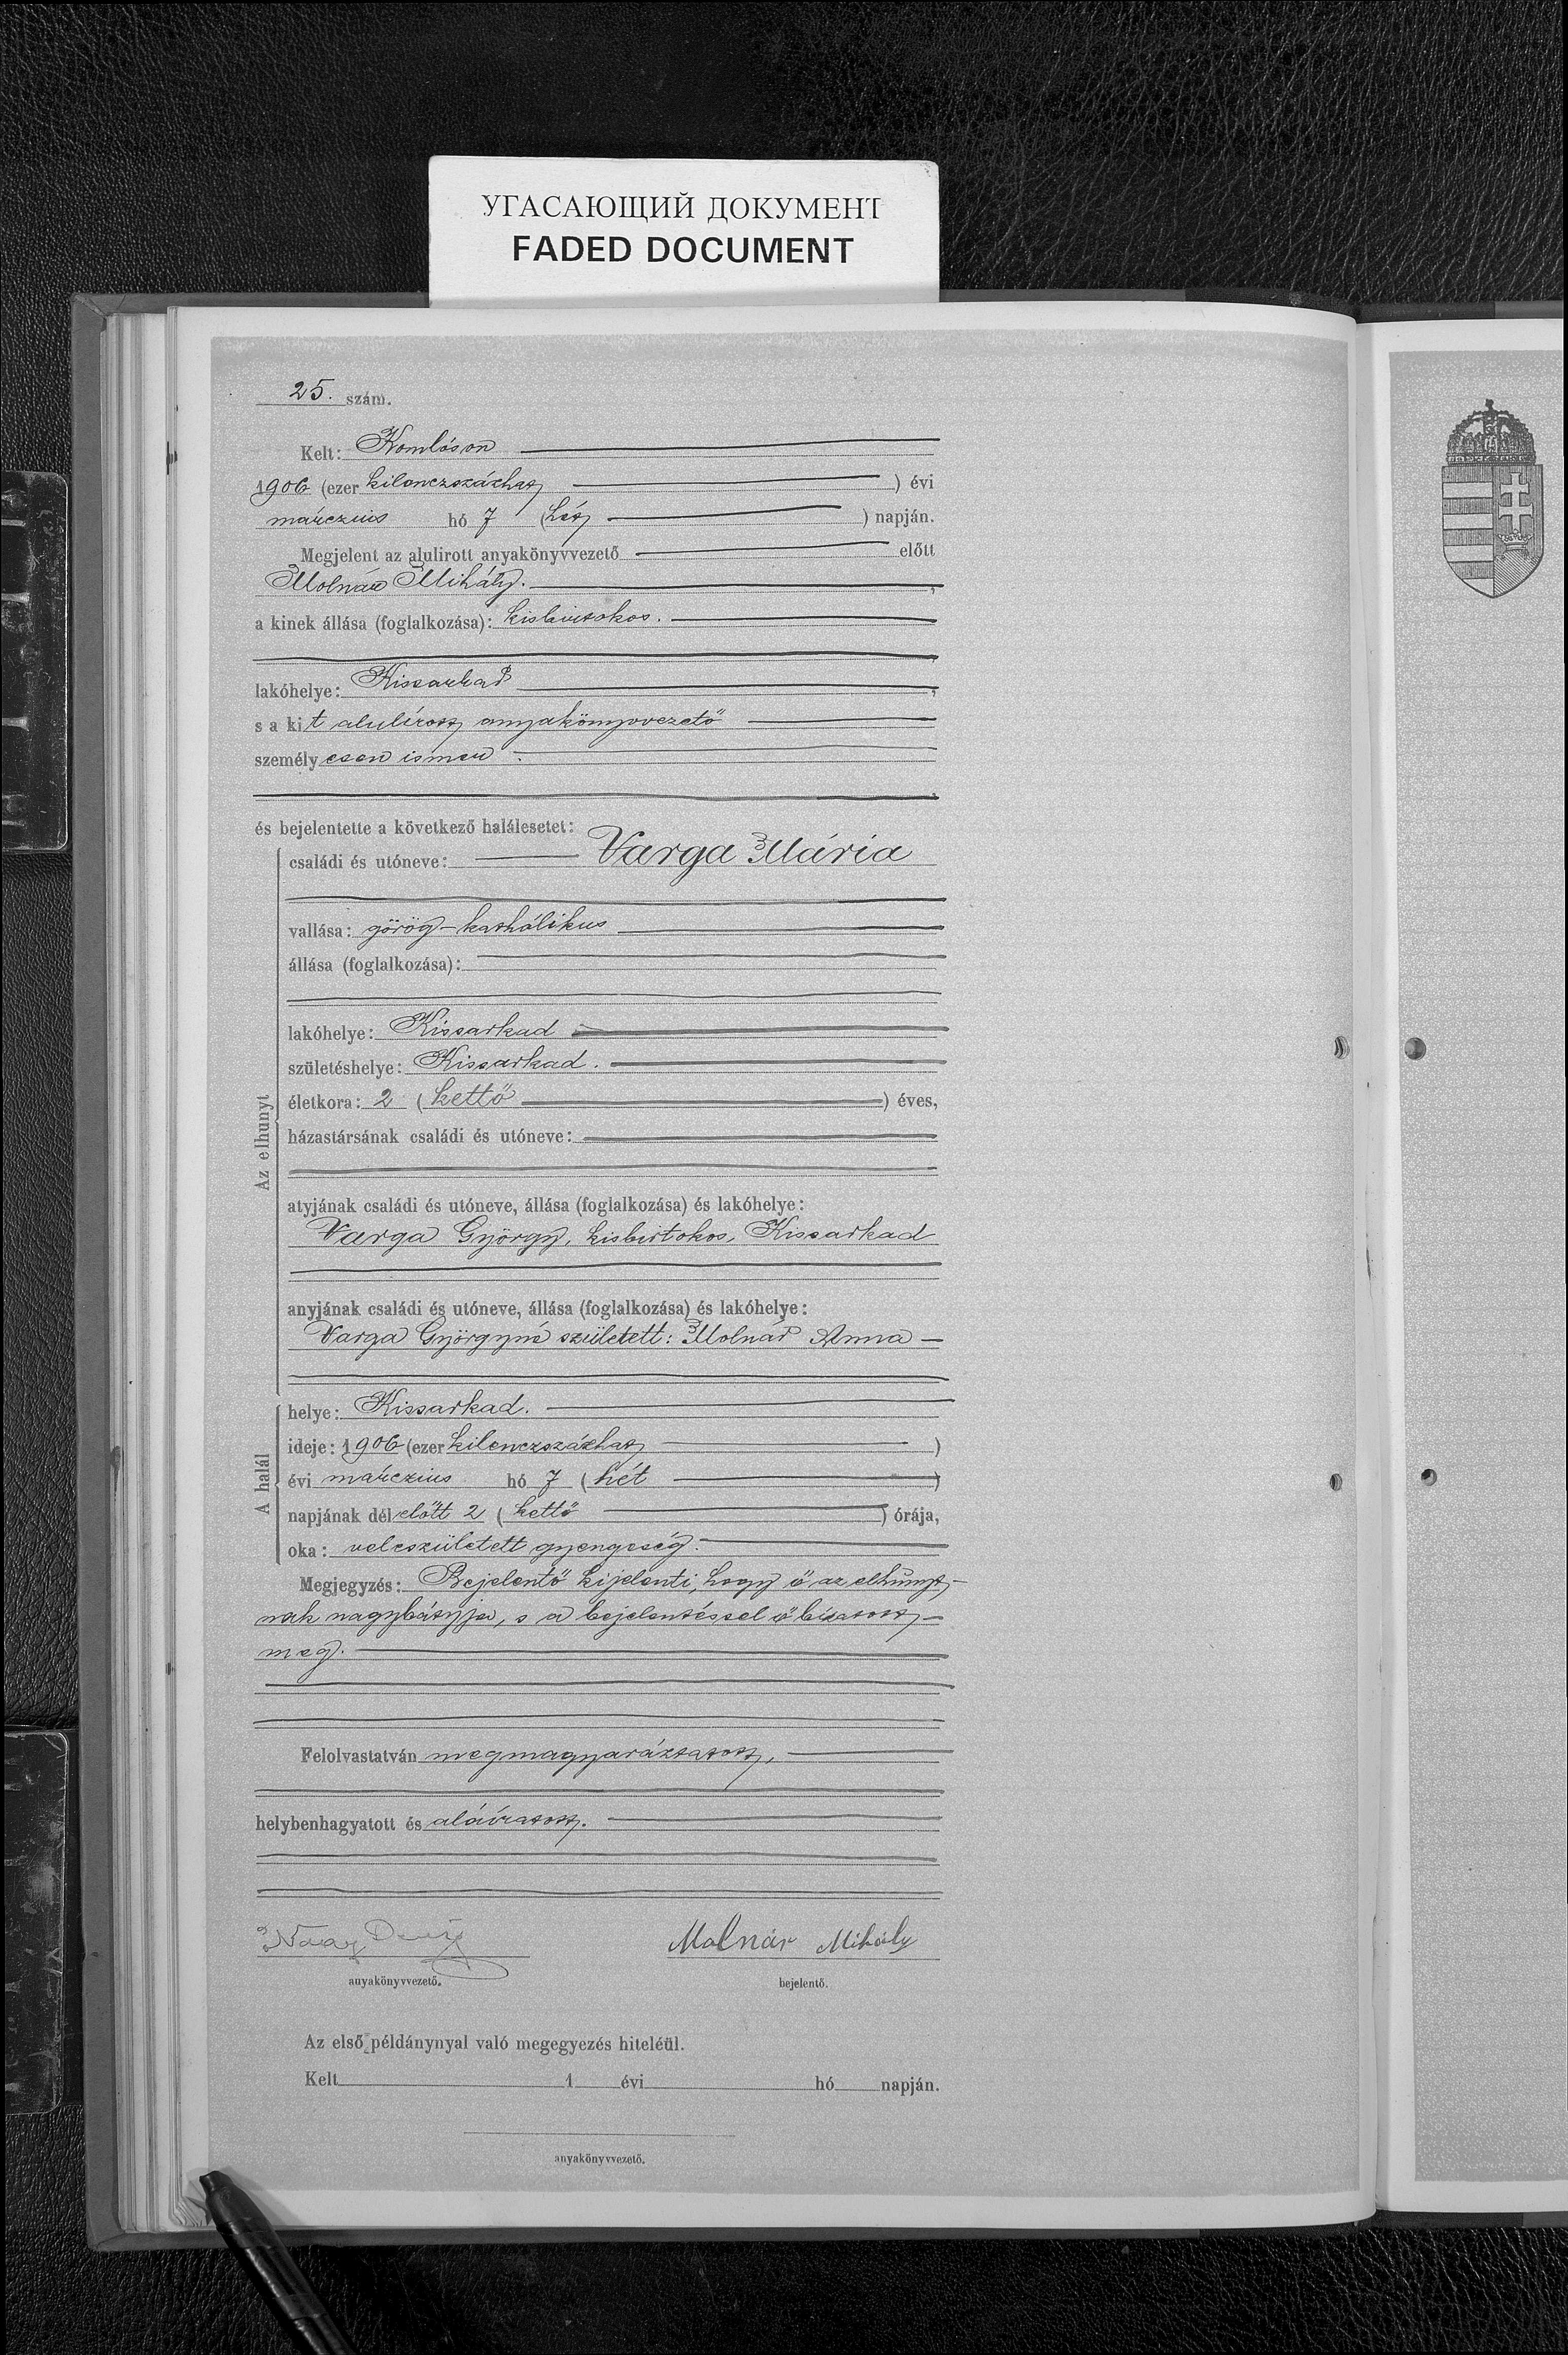 УГАСАЮЩИЙ ДОКУМЕНТ
FADED DOCUMENT
25. szám.
Kelt: Komlóson
1906 (ezer kilenczszázhat) évi
márczius hó 7 (hét) napján.
Megjelent az alulirott anyakönyvvezető előtt
Molnár Mihály.,
a kinek állása (foglalkozása): kisbirtokos.
lakóhelye: Kissarkad,
s a kit alulírott anyakönyvvezető
személyesen ismer.
és bejelentette a következő halálesetet:
Az elhunyt
családi és utóneve: Varga Mária
vallása: görög-kathólikus
állása (foglalkozása):
lakóhelye: Kissarkad
születéshelye: Kissarkad.
életkora: 2 (kettő) éves,
házastársának családi és utóneve:
atyjának családi és utóneve, állása (foglalkozása) és lakóhelye:
Varga György, kisbirtokos, Kissarkad
anyjának családi és utóneve, állása (foglalkozása) és lakóhelye:
Varga Györgyné született: Molnár Anna —
A halál
helye: Kissarkad.
ideje: 1906 (ezer kilenczszázhat)
évi márczius hó 7 (hét)
napjának délelőtt 2 (kettő) órája,
oka: veleszületett gyengeség.
Megjegyzés: Bejelentő kijelenti, hogy ő az elhúnyt-
nak nagybátyja, s a bejelentéssel ő bízatott
meg.
Felolvastatván megmagyaráztatott,
helybenhagyatott és aláíratott.
Nagy Molnár Mihály
anyakönyvvezető. bejelentő.
Az első példánynyal való megegyezés hiteléül.
Kelt 1 évi hó napján.
anyakönyvvezető.